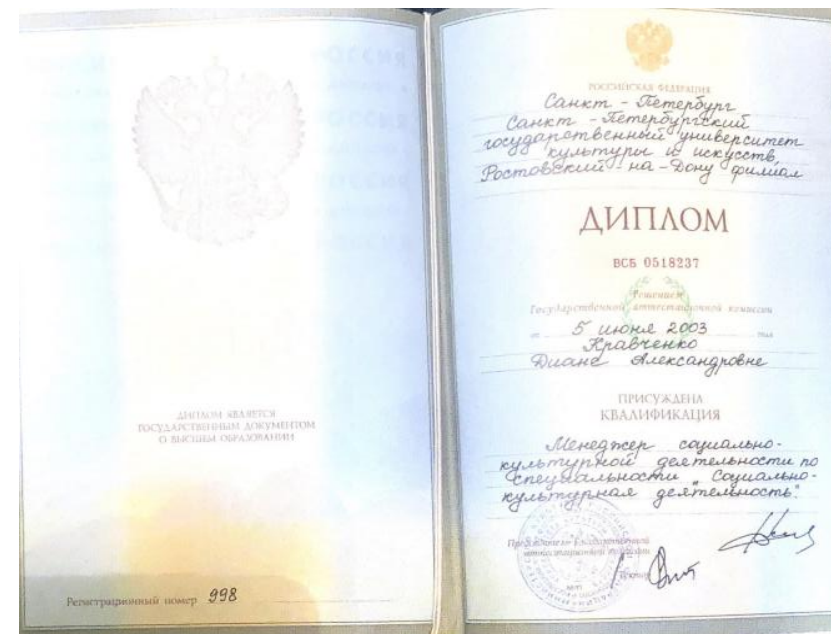 ДИПЛОМ ЯВЛЯЕТСЯ
ГОСУДАРСТВЕННЫМ ДОКУМЕНТОМ
О ВЫСШЕМ ОБРАЗОВАНИИ
Регистрационный номер 998
РОССИЙСКАЯ ФЕДЕРАЦИЯ
Санкт-Петербург
Санкт-Петербургский
государственный университет
культуры и искусств,
Ростовский-на-Дону филиал
ДИПЛОМ
ВСБ 0518237
Решением
Государственной аттестационной комиссии
от 5 июня 2003 года
Кравченко
Диане Александровне
ПРИСУЖДЕНА
КВАЛИФИКАЦИЯ
Менеджер социально-
культурной деятельности по
специальности „Социально-
культурная деятельность".
Председатель Государственной
аттестационной комиссии
Ректор